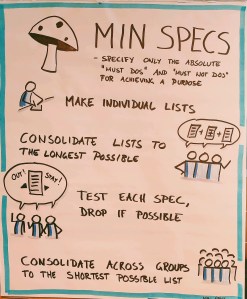 MIN SPECS
- SPECIFY ONLY THE ABSOLUTE
"MUST DOS" AND "MUST NOT DOS"
FOR ACHIEVING A PURPOSE
MAKE INDIVIDUAL LISTS
CONSOLIDATE LISTS TO
THE LONGEST POSSIBLE
OUT!
STAY!
TEST EACH SPEC,
DROP IF POSSIBLE
CONSOLIDATE ACROSS GROUPS
TO THE SHORTEST POSSIBLE LIST